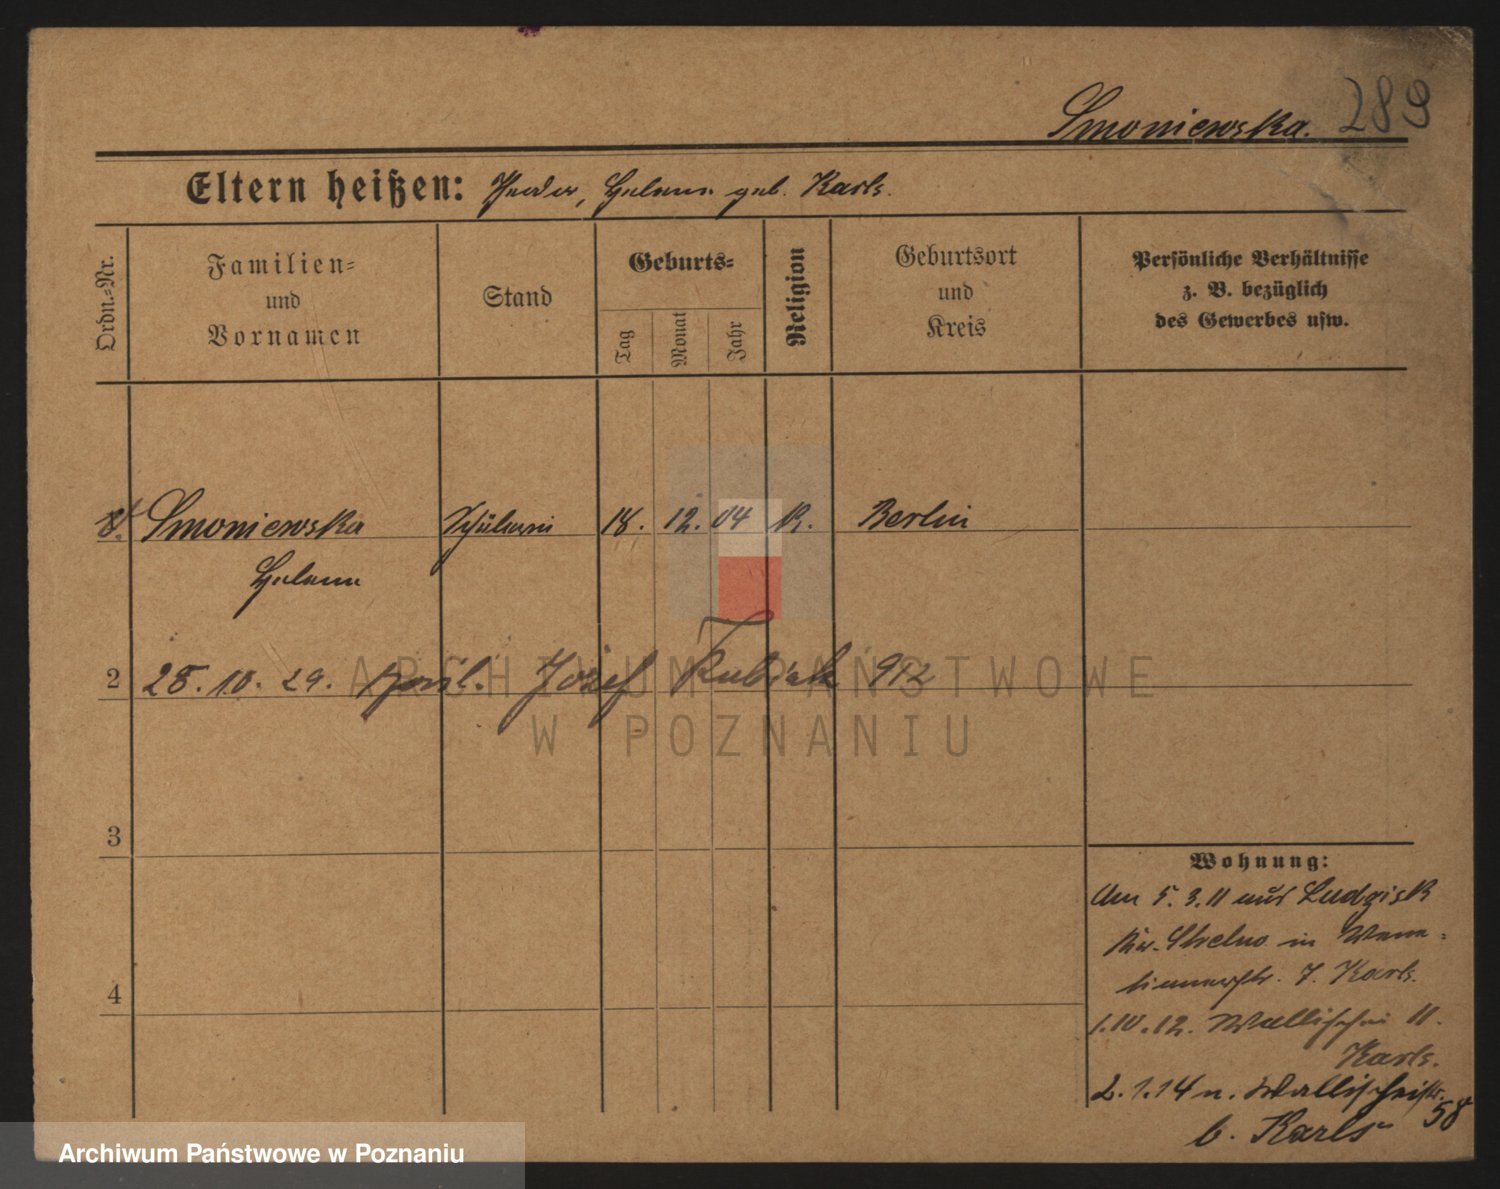 Smoniewska. 289
Eltern heißen: Helene geb. Karls.
Ordn.=Nr.
Familien=
und
Vornamen
Stand
Geburts=
Tag
Monat
Jahr
Religion
Geburtsort
und
Kreis
Persönliche Verhältnisse
z. B. bezüglich
des Gewerbes usw.
Smoniewska Schülerin 18. 12. 04 K. Berlin
Helene
2 28. 10. 29. Józef Kubiak 912
ARCHIWUM PAŃSTWOWE
W POZNANIU
3
4
Wohnung:
Am 5. 3. 11 aus Ludzisk
Kr. Strelno in
7. Karls.
1. 10. 12. Wallischei 11.
Karls.
2. 1. 14 n. Wallischeistr. 58
b. Karls
Archiwum Państwowe w Poznaniu